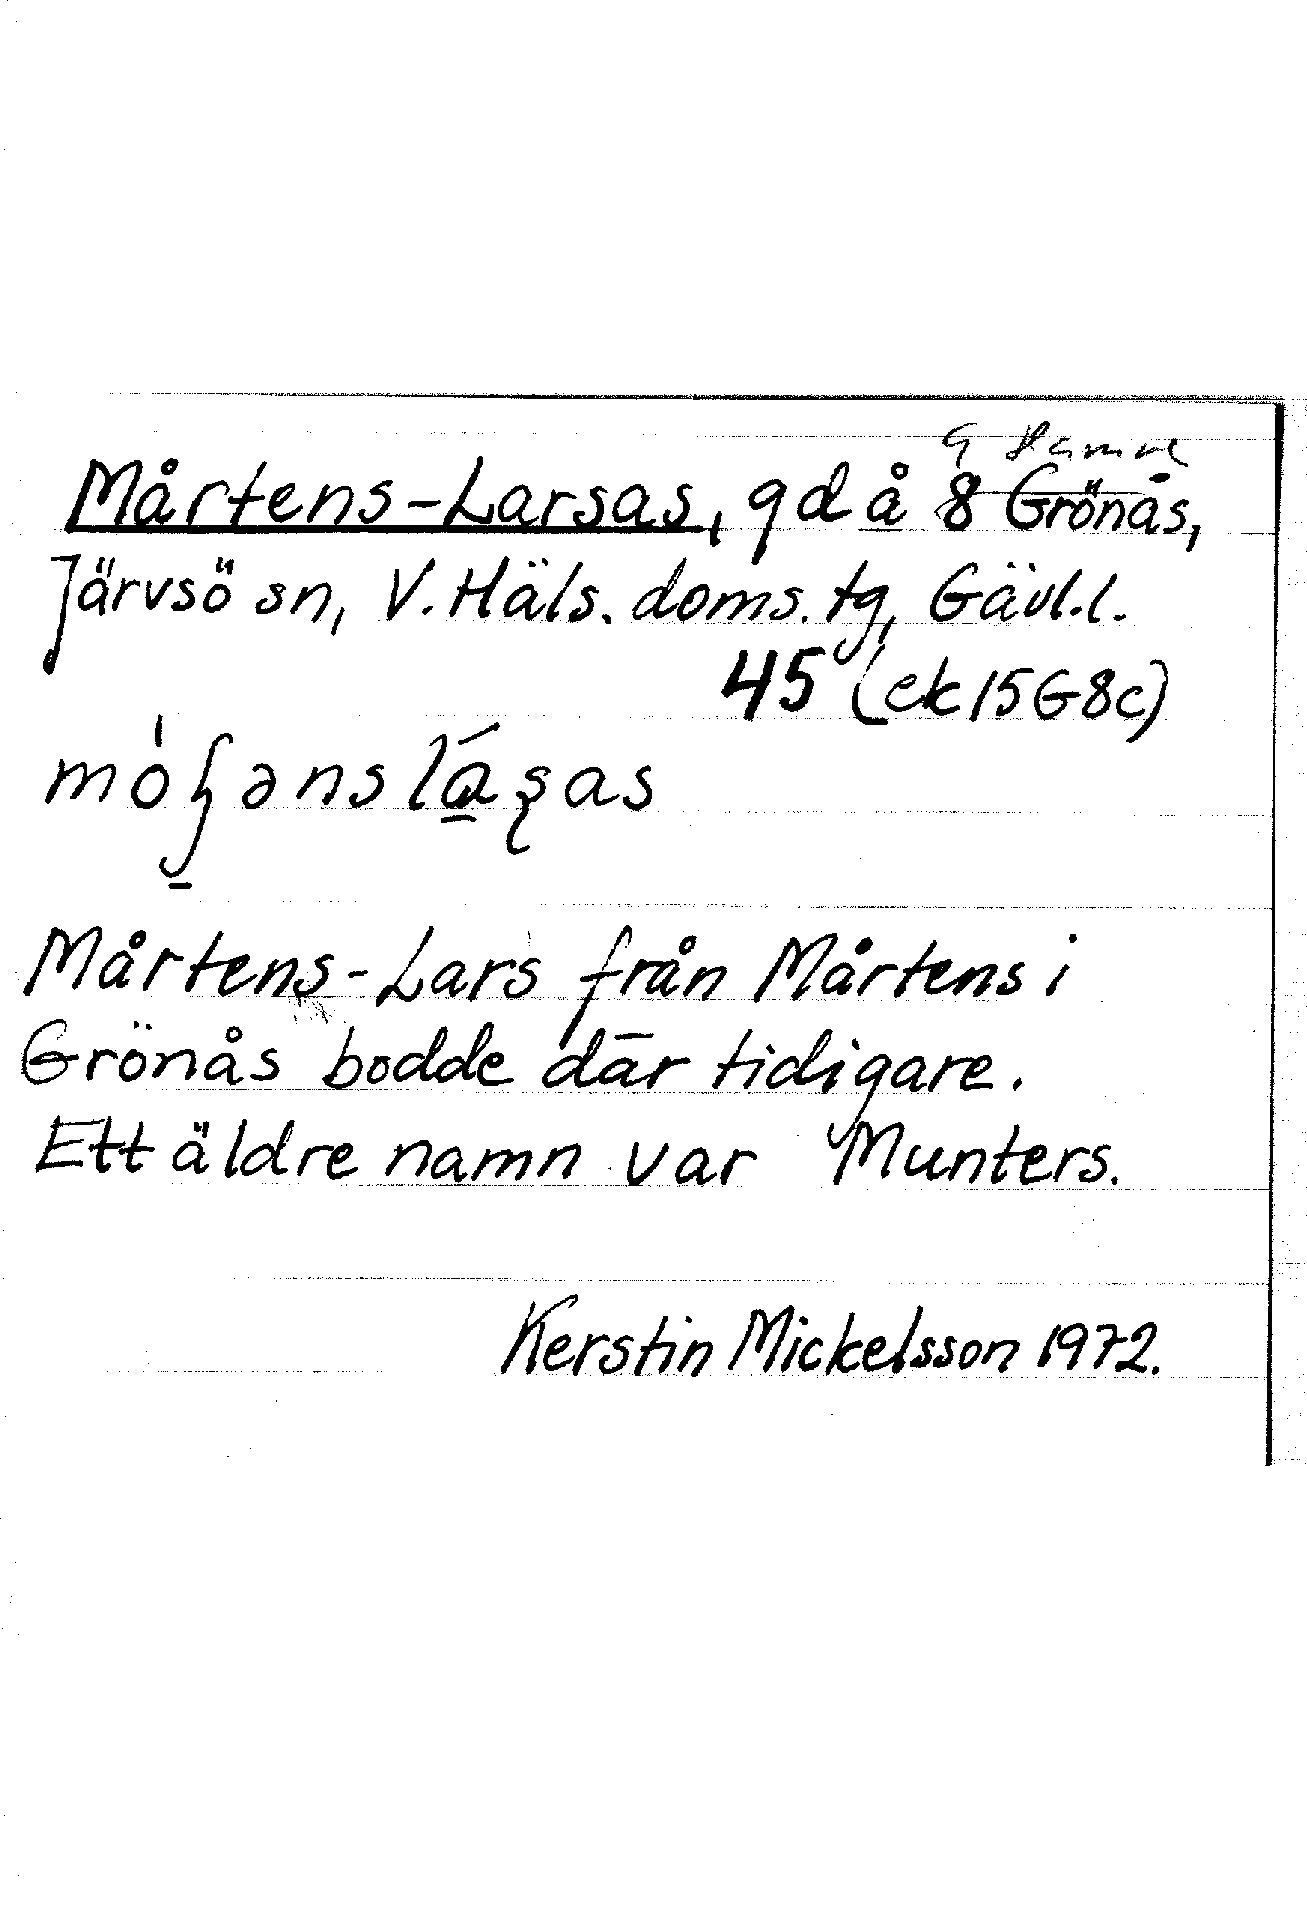 Mårtens-Larsas, gd å 8 Grönås,
Järvsö sn, V. Häls. doms. tg, Gävl.l.
45 (ek 15G8c)
Mårtens-Lars från Mårtens i
Grönås bodde där tidigare.
Ett äldre namn var Munters.
Kerstin Mickelsson 1972.